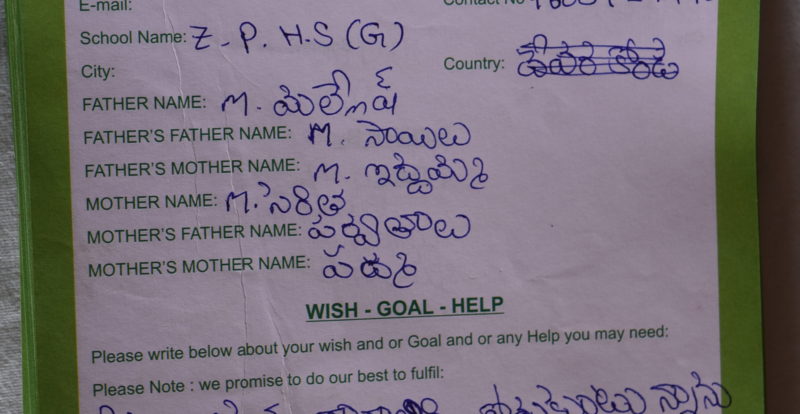 E-mail:
Contact No
School Name: Z-P.H.S (G)
City:
Country: దేవర కొండ
FATHER NAME: M. మల్లేష్
FATHER'S FATHER NAME: M. సాయిలు
FATHER'S MOTHER NAME: M.
MOTHER NAME: M. సరిత
MOTHER'S FATHER NAME: పర్వతాలు
MOTHER'S MOTHER NAME: పద్మ
WISH - GOAL - HELP
Please write below about your wish and or Goal and or any Help you may need:
Please Note : we promise to do our best to fulfil: